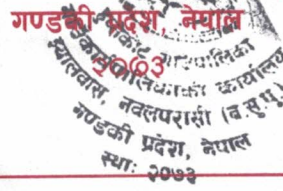 गण्डकी प्रदेश, नेपाल
२०७३
नगरपालिका
कार्यालय
नवलपरासी (ब.सु.पू.)
गण्डकी प्रदेश, नेपाल
स्थाः २०७३